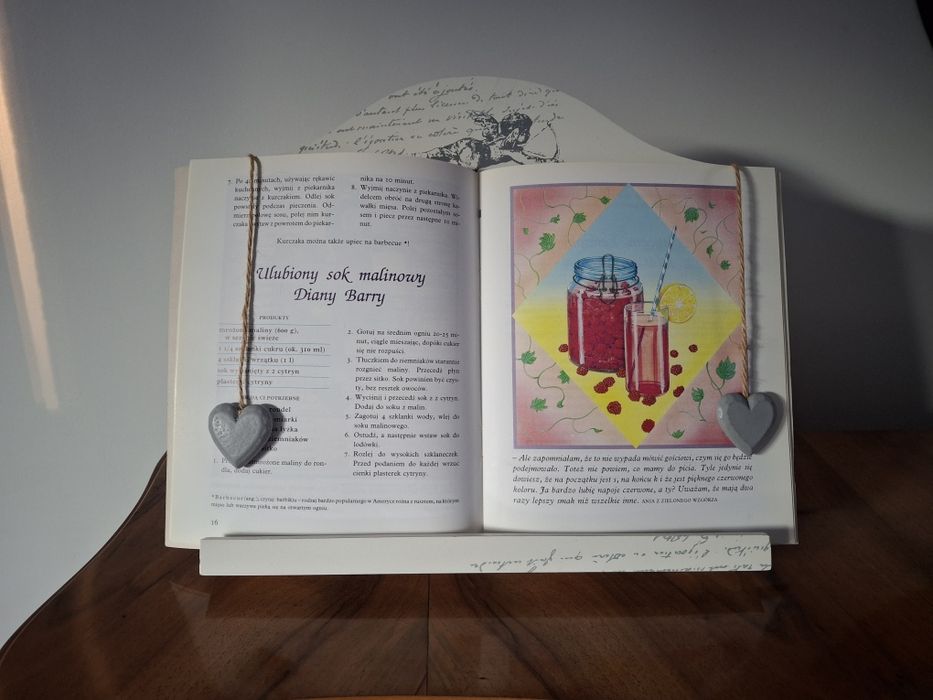 7. Po 40 minutach, używając rękawic
kuchennych, wyjmij z piekarnika
naczynie z kurczakiem. Odlej sok
powstały podczas pieczenia. Od-
mierz połowę sosu, polej nim kur-
czaka i wstaw z powrotem do piekar-
nika na 10 minut.
8. Wyjmij naczynie z piekarnika. Wi-
delcem obróć na drugą stronę ka-
wałki mięsa. Polej pozostałym so-
sem i piecz przez następne 10 mi-
nut.
Kurczaka można także upiec na barbecue *!
Ulubiony sok malinowy
Diany Barry
PRODUKTY
mrożone maliny (600 g),
w sezonie świeże
1 1/4 szklanki cukru (ok. 310 ml)
4 szklanki wrzątku (1 l)
sok wyciśnięty z 2 cytryn
plasterki cytryny
BĘDĄ CI POTRZEBNE
rondel
łyżka
ziemniaków
sitko
1. mrożone maliny do ron-
dla, dodaj cukier.
2. Gotuj na średnim ogniu 20-25 mi-
nut, ciągle mieszając, dopóki cukier
się nie rozpuści.
3. Tłuczkiem do ziemniaków starannie
rozgnieć maliny. Przecedź płyn
przez sitko. Sok powinien być czys-
ty, bez resztek owoców.
4. Wyciśnij i przecedź sok z 2 cytryn.
Dodaj do soku z malin.
5. Zagotuj 4 szklanki wody, wlej do
soku malinowego.
6. Ostudź, a następnie wstaw sok do
lodówki.
7. Rozlej do wysokich szklaneczek.
Przed podaniem do każdej wrzuć
cienki plasterek cytryny.
* Barbecue (ang.), czytaj: barbikiu – rodzaj bardzo popularnego w Ameryce rożna z rusztem, na którym
mięso lub warzywa pieką się na otwartym ogniu.
16
– Ale zapomniałam, że to nie wypada mówić gościowi, czym się go będzie
podejmowało. Toteż nie powiem, co mamy do picia. Tyle jedynie się
dowiesz, że na początku jest s, na końcu k i że jest pięknego czerwonego
koloru. Ja bardzo lubię napoje czerwone, a ty? Uważam, że mają dwa
razy lepszy smak niż wszelkie inne. ANIA Z ZIELONEGO WZGÓRZA